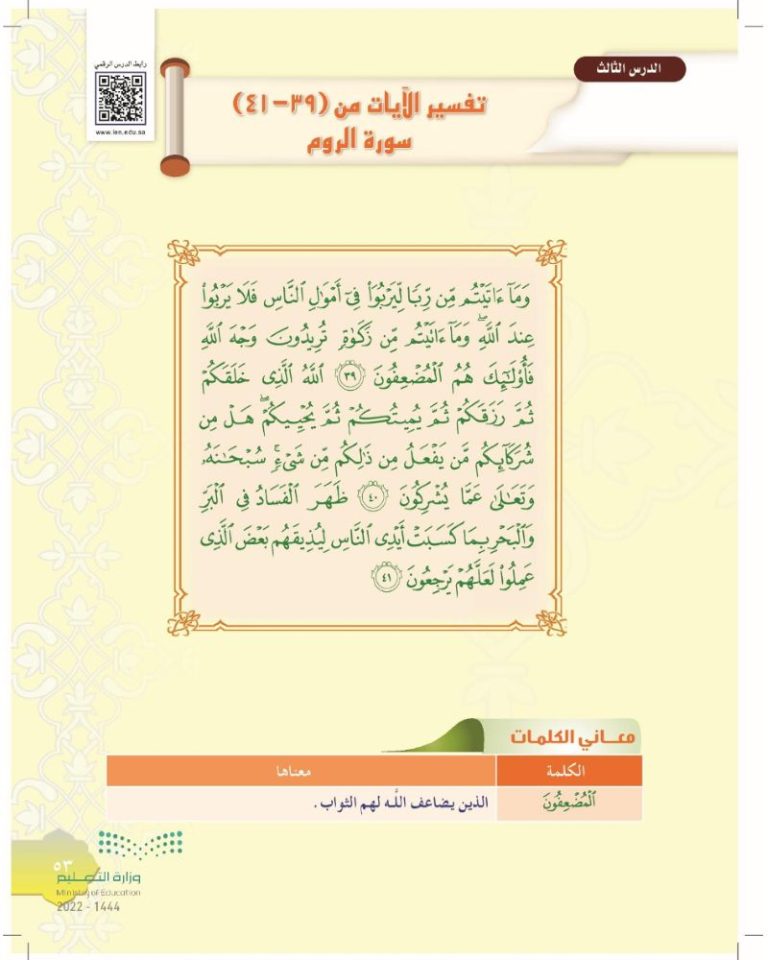 الدرس الثالث
رابط الدرس الرقمي
www.ien.edu.sa
تفسير الآيات من (٣٩-٤١)
سورة الروم
وَمَآ ءَاتَيۡتُم مِّن رِّبٗا لِّيَرۡبُوَاْ فِيٓ أَمۡوَٰلِ ٱلنَّاسِ فَلَا يَرۡبُواْ
عِندَ ٱللَّهِۖ وَمَآ ءَاتَيۡتُم مِّن زَكَوٰةٖ تُرِيدُونَ وَجۡهَ ٱللَّهِ
فَأُوْلَٰٓئِكَ هُمُ ٱلۡمُضۡعِفُونَ ٣٩ ٱللَّهُ ٱلَّذِي خَلَقَكُمۡ
ثُمَّ رَزَقَكُمۡ ثُمَّ يُمِيتُكُمۡ ثُمَّ يُحۡيِيكُمۡۖ هَلۡ مِن
شُرَكَآئِكُم مَّن يَفۡعَلُ مِن ذَٰلِكُم مِّن شَيۡءٖۚ سُبۡحَٰنَهُۥ
وَتَعَٰلَىٰ عَمَّا يُشۡرِكُونَ ٤٠ ظَهَرَ ٱلۡفَسَادُ فِي ٱلۡبَرِّ
وَٱلۡبَحۡرِ بِمَا كَسَبَتۡ أَيۡدِي ٱلنَّاسِ لِيُذِيقَهُم بَعۡضَ ٱلَّذِي
عَمِلُواْ لَعَلَّهُمۡ يَرۡجِعُونَ ٤١
معـــاني الكلمـات
الكلمة معناها
ٱلۡمُضۡعِفُونَ الذين يضاعف اللَّـه لهم الثواب .
٥٣
وزارة التعـــليم
Ministry of Education
2022 - 1444